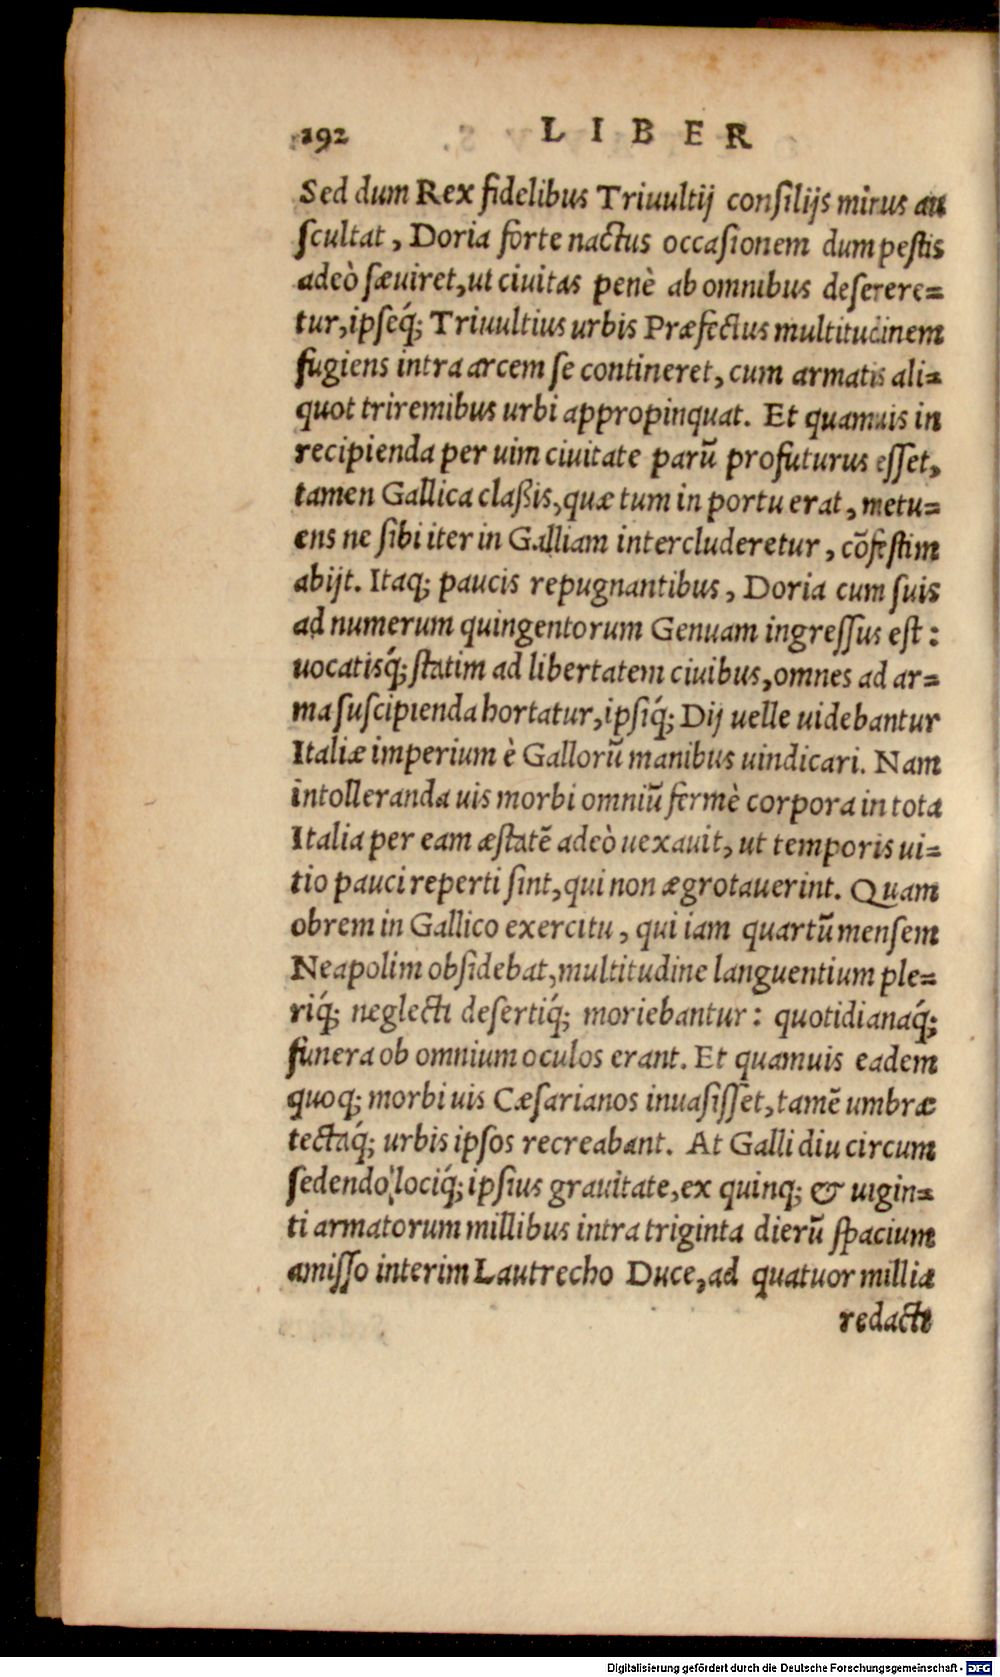 192 LIBER
Sed dum Rex fidelibus Triuultij consilijs minus au
scultat, Doria forte nactus occasionem dum pestis
adeò sæuiret, ut ciuitas penè ab omnibus deserere=
tur, ipseq́; Triuultius urbis Præfectus multitudinem
fugiens intra arcem se contineret, cum armatis ali=
quot triremibus urbi appropinquat. Et quamuis in
recipienda per uim ciuitate parū profuturus esset,
tamen Gallica claßis, quæ tum in portu erat, metu=
ens ne sibi iter in Galliam intercluderetur, cōfestim
abijt. Itaq; paucis repugnantibus, Doria cum suis
ad numerum quingentorum Genuam ingressus est:
uocatisq́; statim ad libertatem ciuibus, omnes ad ar=
ma suscipienda hortatur, ipsiq́; Dij uelle uidebantur
Italiæ imperium è Gallorū manibus uindicari. Nam
intolleranda uis morbi omniū fermè corpora in tota
Italia per eam æstatē adeò uexauit, ut temporis ui=
tio pauci reperti sint, qui non ægrotauerint. Quam
obrem in Gallico exercitu, qui iam quartū mensem
Neapolim obsidebat, multitudine languentium ple=
riq́; neglecti desertiq́; moriebantur: quotidianaq́;
funera ob omnium oculos erant. Et quamuis eadem
quoq; morbi uis Cæsarianos inuasisset, tamē umbræ
tectaq́; urbis ipsos recreabant. At Galli diu circum
sedendo lociq́; ipsius grauitate, ex quinq; & uigin=
ti armatorum millibus intra triginta dierū spacium
amisso interim Lautrecho Duce, ad quatuor millia
redacti
Digitalisierung gefördert durch die Deutsche Forschungsgemeinschaft - DFG